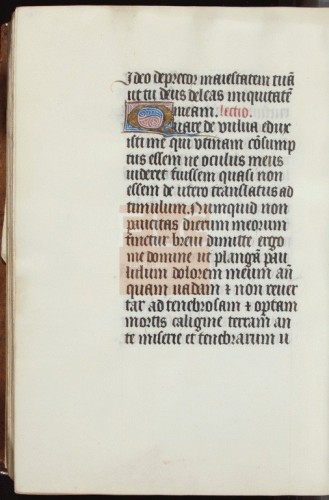 Ideo deprecor maiestatem tuā
ut tu deus deleas iniquitatē
meam. lectio.
Quare de vulva edux
isti me qui utinam cōsump
tus essem ne oculus meus
videret fuissem quasi non
essem de utero translatus ad
tumulum. Numquid non
paucitas dierum meorum
finietur brevi dimitte ergo
me domine ut plangā pau
lulum dolorem meum an̄
quam vadam ⁊ non rever
tar ad tenebrosam ⁊ optam
mortis caligine terram an
te miserie et tenebrarum u